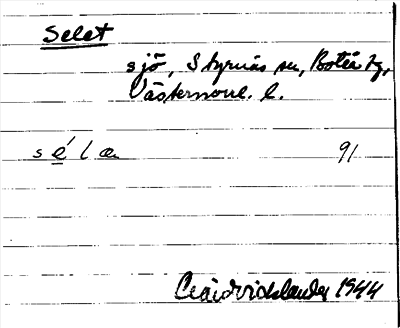 Selet
sjö, Styrnäs sn, Boteå tg,
Västernorrl. l.
sé̱læ 91
1944